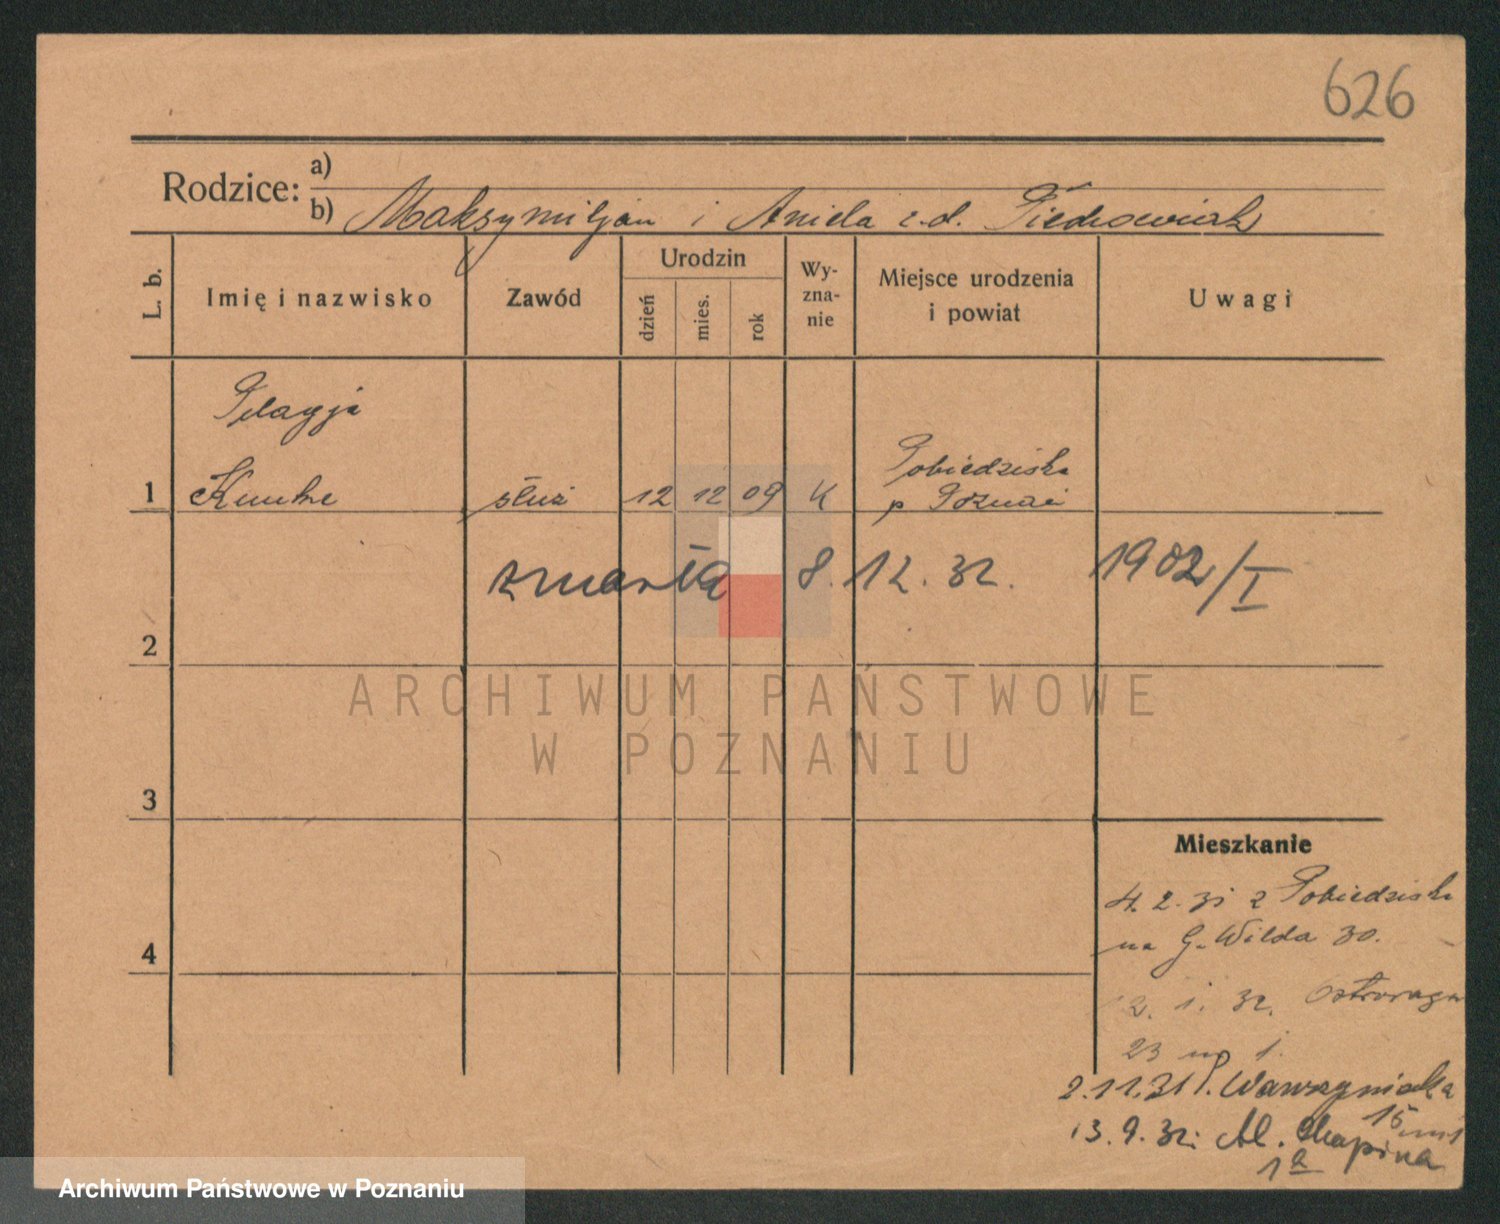 626
Rodzice: a)
b) Maksymiljan i Aniela z.d.
L. b.
Imię i nazwisko
Zawód
Urodzin
dzień
mies.
rok
Wy-
zna-
nie
Miejsce urodzenia
i powiat
Uwagi
Pelagja
1
służ
12 12 09 K
Pobiedziska
p Poznań
zmarła 8.12.32. 1902/I
2
ARCHIWUM PAŃSTWOWE
W POZNANIU
3
Mieszkanie
4. 2. 31 z Pobiedzisk
na G. Wilda 30.
4
2. 1. 32. Ostroroga
23 m 1.
2.11.31 P. Wawrzyniaka
15 m 1
13. 9. 32. Al. Chopina
1a
Archiwum Państwowe w Poznaniu